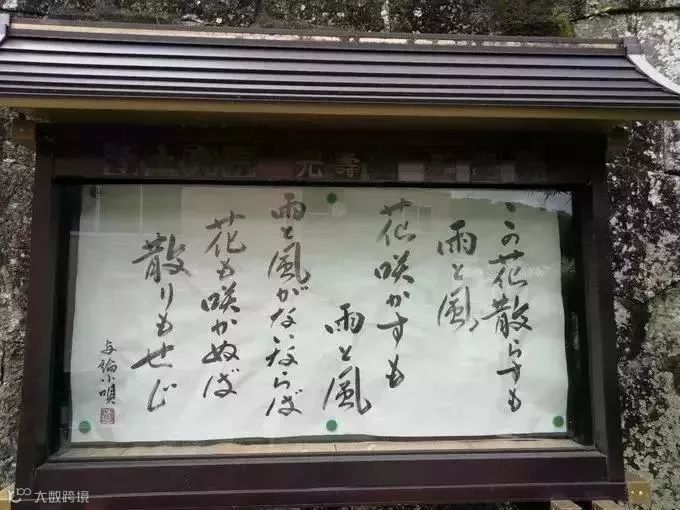 光壽
この花散らすも
雨と風
花咲かすも
雨と風
雨と風がないならば
花も咲かねば
散りもせじ
与論小唄
大数跨境